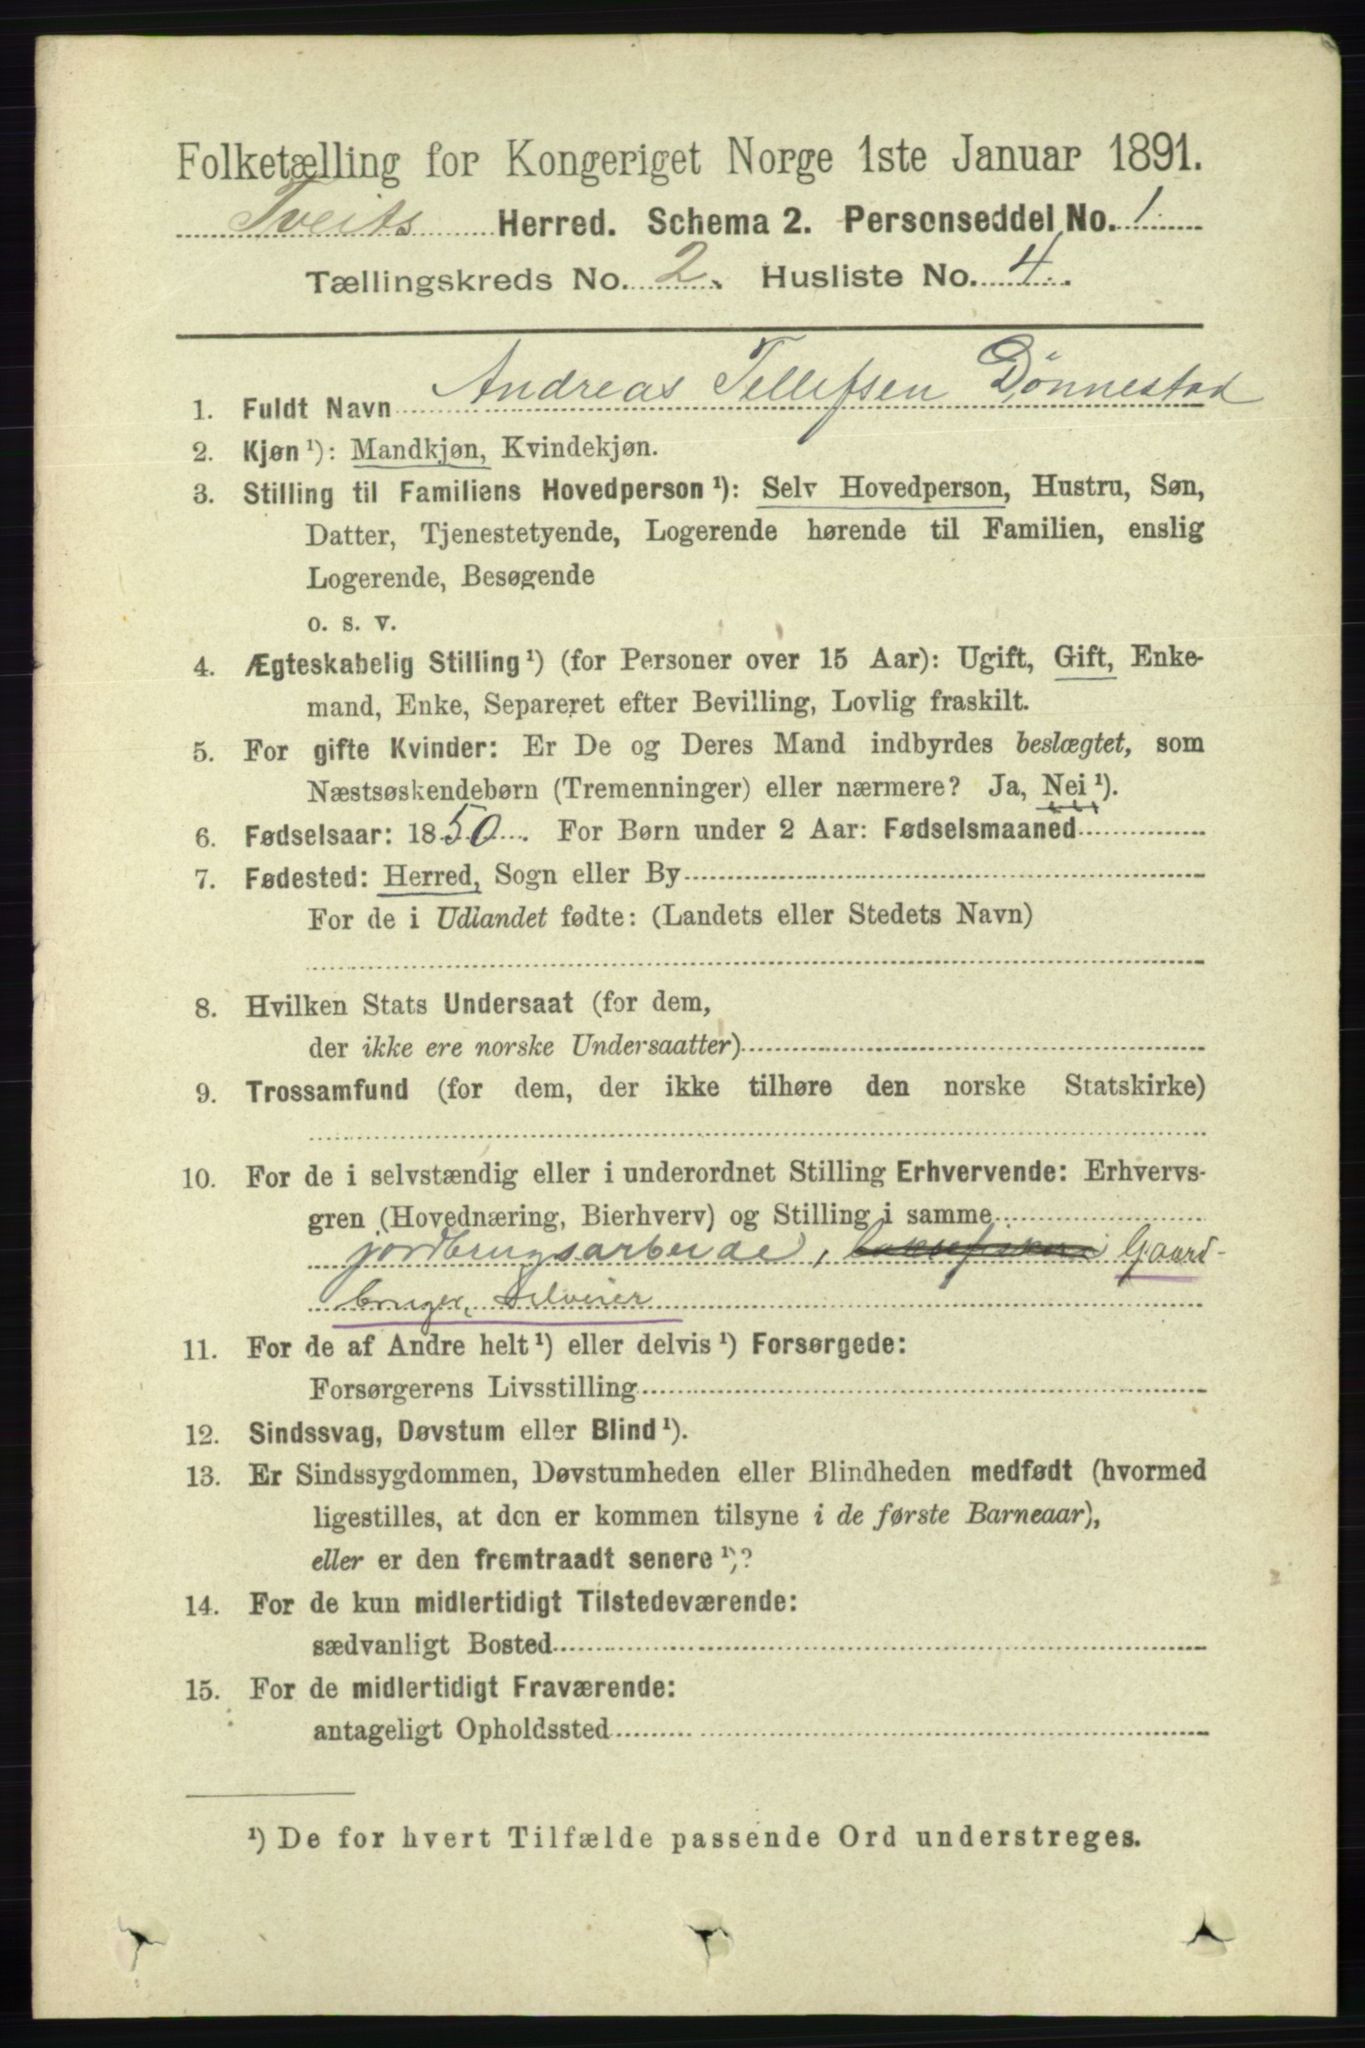 Folketælling for Kongeriget Norge 1ste Januar 1891.
Tveits Herred. Schema 2. Personseddel No. 1.
Tællingskreds No. 2. Husliste No. 4.
1. Fuldt Navn Andreas Tellefsen Dønnestad
2. Kjøn¹): Mandkjøn, Kvindekjøn.
3. Stilling til Familiens Hovedperson¹): Selv Hovedperson, Hustru, Søn,
Datter, Tjenestetyende, Logerende hørende til Familien, enslig
Logerende, Besøgende
o. s. v.
4. Ægteskabelig Stilling¹) (for Personer over 15 Aar): Ugift, Gift, Enke-
mand, Enke, Separeret efter Bevilling, Lovlig fraskilt.
5. For gifte Kvinder: Er De og Deres Mand indbyrdes beslægtet, som
Næstsøskendebørn (Tremenninger) eller nærmere? Ja, Nei¹).
6. Fødselsaar: 1850. For Børn under 2 Aar: Fødselsmaaned
7. Fødested: Herred, Sogn eller By
For de i Udlandet fødte: (Landets eller Stedets Navn)
8. Hvilken Stats Undersaat (for dem,
der ikke ere norske Undersaatter)
9. Trossamfund (for dem, der ikke tilhøre den norske Statskirke)
10. For de i selvstændig eller i underordnet Stilling Erhvervende: Erhvervs-
gren (Hovednæring, Bierhverv) og Stilling i samme
jordbrugsarbeide, Gaard-
bruger, Selveier
11. For de af Andre helt¹) eller delvis¹) Forsørgede:
Forsørgerens Livsstilling
12. Sindssvag, Døvstum eller Blind¹).
13. Er Sindssygdommen, Døvstumheden eller Blindheden medfødt (hvormed
ligestilles, at den er kommen tilsyne i de første Barneaar),
eller er den fremtraadt senere¹)?
14. For de kun midlertidigt Tilstedeværende:
sædvanligt Bosted
15. For de midlertidigt Fraværende:
antageligt Opholdssted
¹) De for hvert Tilfælde passende Ord understreges.